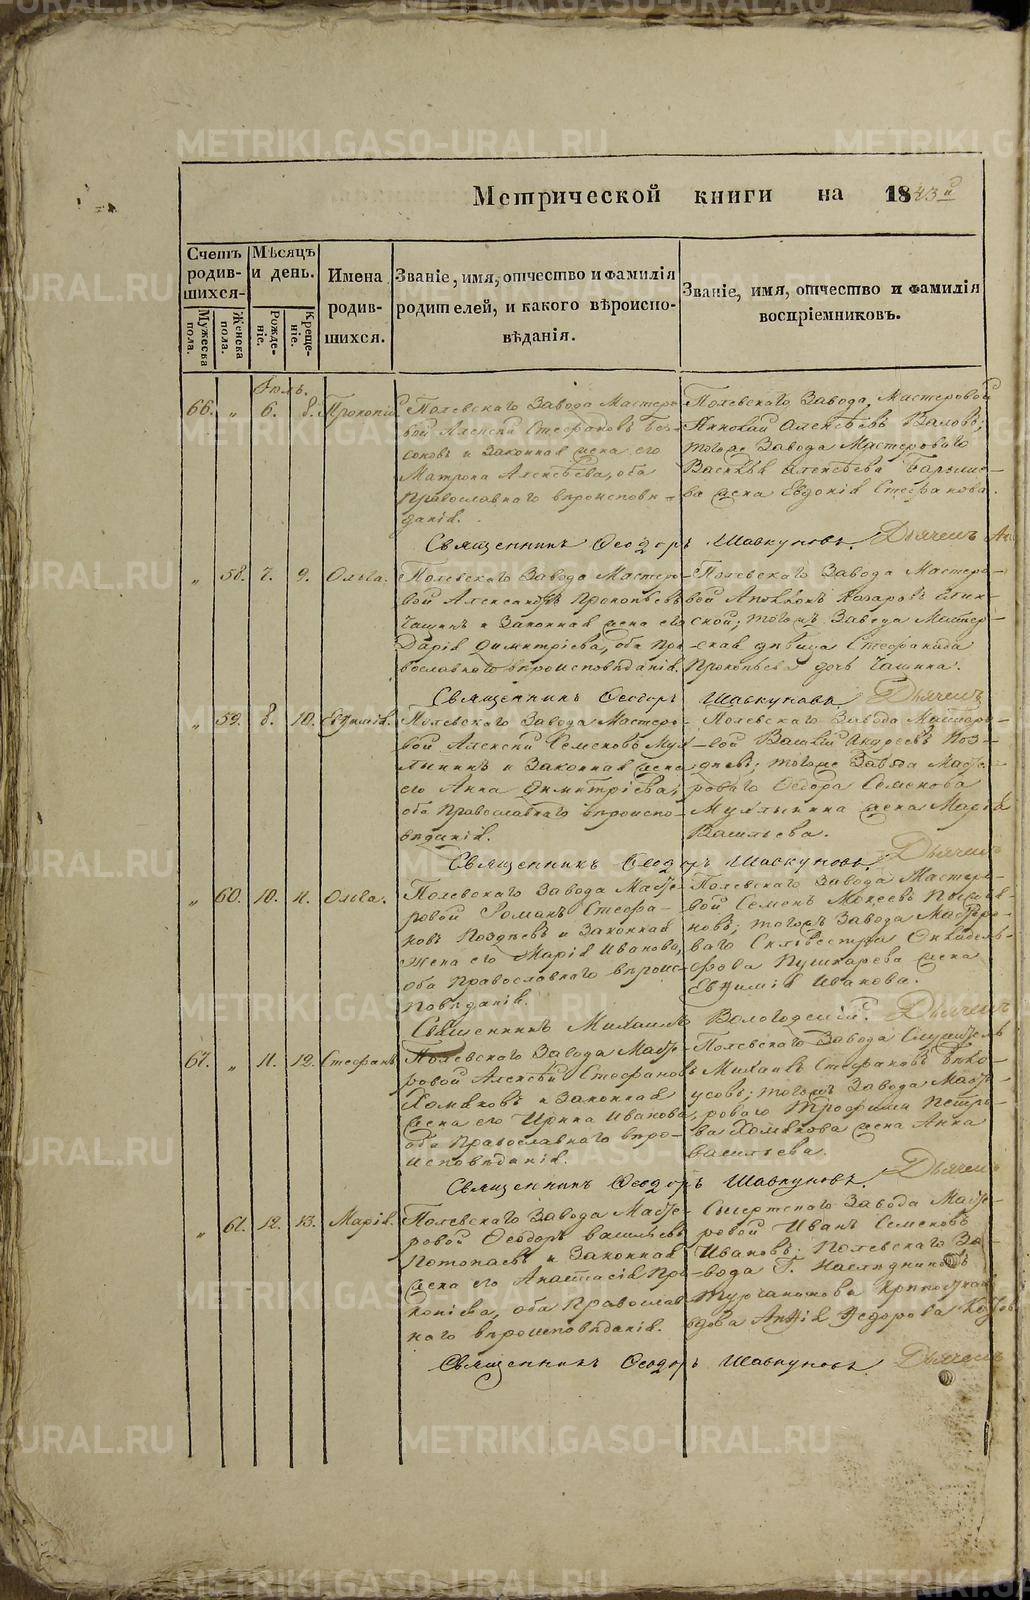 METRIKI.GASO-URAL.RU
Метрической книги на 1843й
Счетъ родив-шихся.
Мѣсяцъ и день.
Имена родив-шихся.
Званіе, имя, отчество и фамилія родителей, и какого вѣроиспо-вѣданія.
Званіе, имя, отчество и фамилія воспріемниковъ.
Мужеска пола.
Женска пола.
Рожде-ніе.
Креще-ніе.
Іюль.
66. „ 6. 8. Прокопій
Полевскаго Завода Мастеро-
вой Алексѣй Стефановъ Без-
соновъ и Законная жена его
Матрона Алексѣева, оба
Православнаго вѣроисповѣ-
данія.
Полевскаго Завода, Мастеровой
Алексѣевъ
тогоже Завода Мастероваго
Алексѣева
ва жена Евдокія Стефанова.
Священникъ Феодоръ Шавкуновъ. Дьячекъ
„ 58. 7. 9. Ольга.
Полевскаго Завода Мастеро-
вой Александръ Прокопьевъ
Чащинъ и Законная жена его
Дарія Димитріева, оба Пра-
вославнаго вѣроисповѣданія.
Полевскаго Завода Мастеро-
вой
ской; тогожъ Завода Мастер-
ская дѣвица Стефанида
Прокопьева дочь Чащина.
Священникъ Феодоръ Шавкуновъ Дьячекъ
„ 59. 8. 10. Евфимія.
Полевскаго Завода Мастеро-
вой Алексѣй Семеновъ Мух-
лынинъ и Законная жена
его Анна Димитріева,
оба Православнаго вѣроиспо-
вѣданія.
Полевскаго Завода Мастеро-
вой Василій Андреевъ Поз-
днѣевъ; тогоже Завода Масте-
роваго Федора Семенова
Мухлынина жена Марія
Васильева.
Священникъ Феодоръ Шавкуновъ Дьячекъ
„ 60. 10. 11. Ольга.
Полевскаго Завода Масте-
ровой Романъ Стефа-
новъ Позднѣевъ и Законная
Жена его Марія Иванова,
оба Православнаго вѣроис-
повѣданія.
Полевскаго Завода Мастеро-
вой Семенъ Мокеевъ
новъ; тогожъ Завода Мастеро-
ваго Силивестра
Пушкарева жена
Евфимія Иванова.
Священникъ Михаилъ Вологодскій. Дьячекъ
67. „ 11. 12. Стефанъ
Полевскаго Завода Масте-
ровой Алексѣй Стефановъ
Хомяковъ и Законная
жена его Ирина Иванова,
оба Православнаго вѣро-
исповѣданія.
Полевскаго Завода Служитель
Михаилъ Стефановъ Бѣло-
усовъ; тогожъ Завода Масте-
роваго Трофима Петро-
ва Хомякова жена Анна
Васильева.
Священникъ Феодоръ Шавкуновъ. Дьячекъ
„ 61. 12. 13. Марія.
Полевскаго Завода Масте-
ровой Феодоръ Васильевъ
Потопаевъ и Законная
жена его Анастасія Про-
копіева, оба Православ-
наго вѣроисповѣданія.
Сысертскаго Завода Масте-
ровой Иванъ Семеновъ
Ивановъ; Полевскаго За-
вода Г. Наслѣдниковъ
Турчанинова
вдова Федорова
Священникъ Феодоръ Шавкуновъ. Дьячекъ